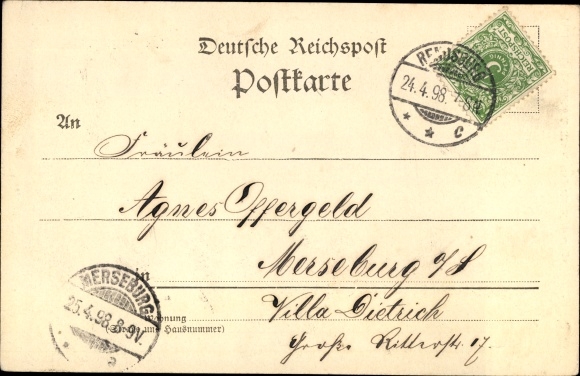 Deutsche Reichspost
Postkarte
RENDSBURG
24.4.98.
* * c
REICHSPOST
An
Fräulein
Agnes Offergeld
Merseburg a/S
in
Villa Dietrich
Wohnung
(Straße und Hausnummer)
Große Ritterstr. 17.
MERSEBURG
25.4.98. 8-9V.
* a